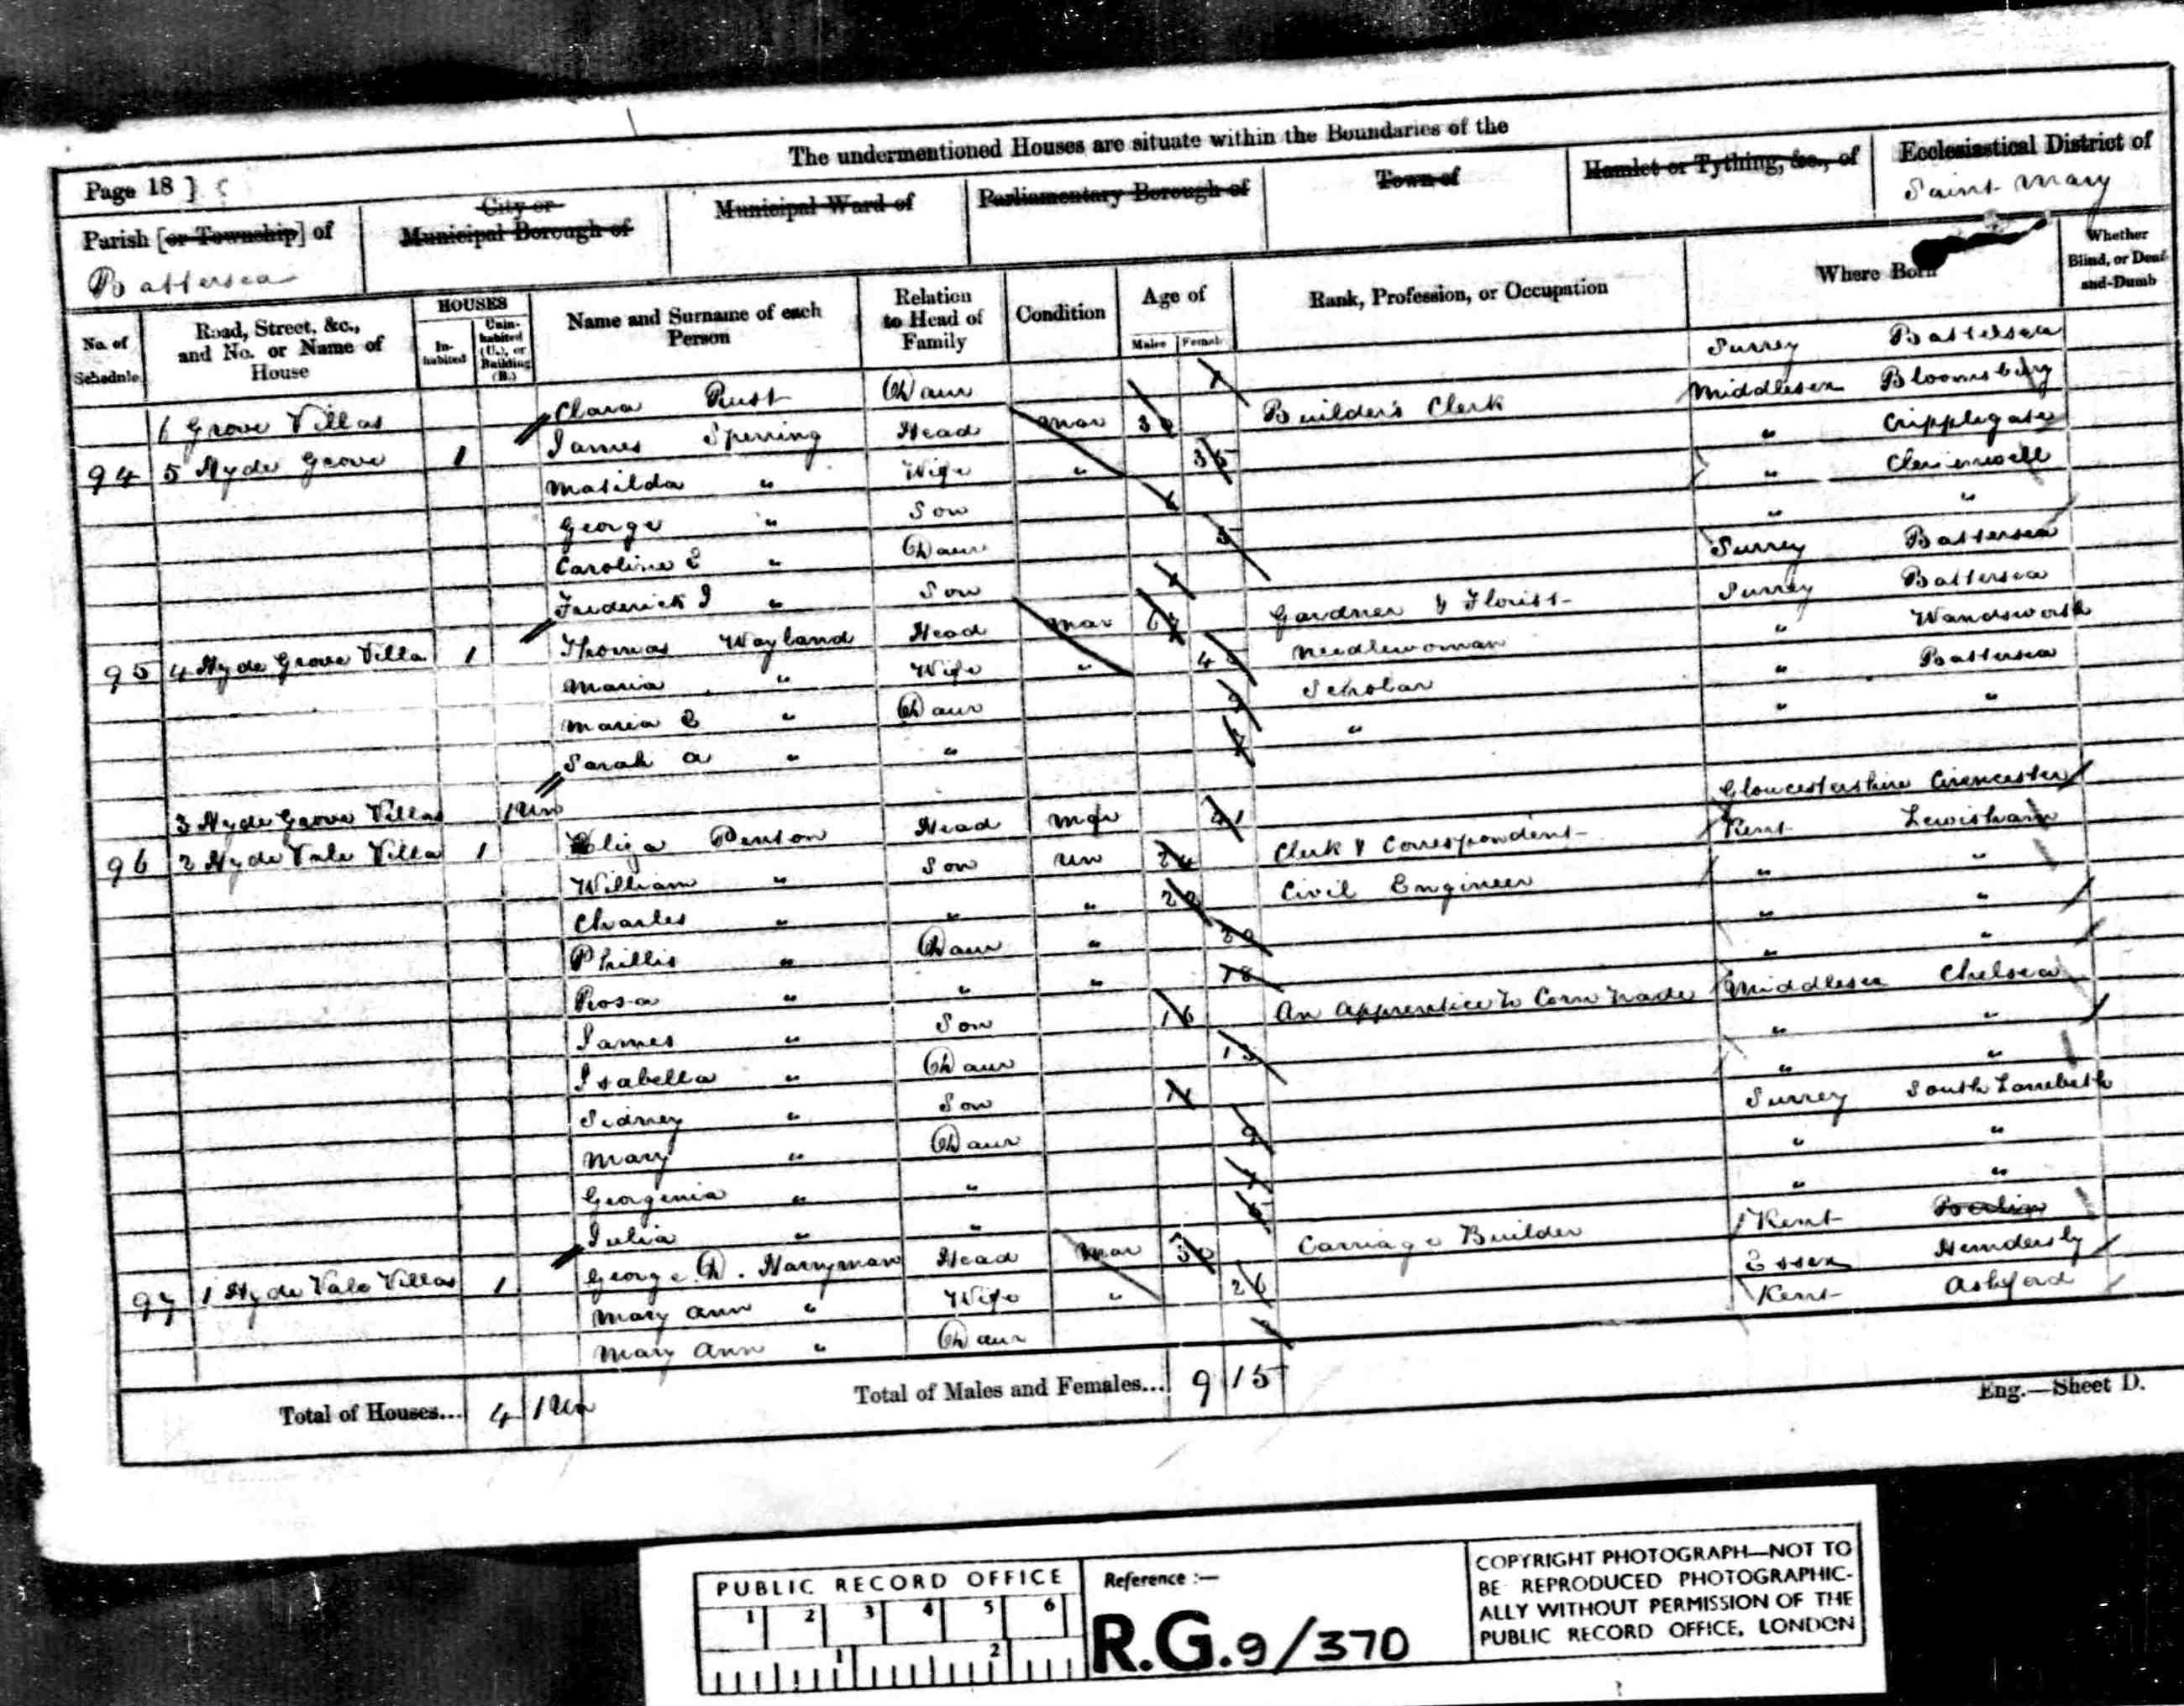 The undermentioned Houses are situate within the Boundaries of the
Page 18]
Parish [or Township] of
Battersea
City or
Municipal Borough of
Municipal Ward of
Parliamentary Borough of
Town of
Hamlet or Tything, &c., of
Ecclesiastical District of
Saint Mary
No. of Schedule
Road, Street, &c., and No. or Name of House
HOUSES
Inhabited
Uninhabited (U.), or Building (B.)
Name and Surname of each Person
Relation to Head of Family
Condition
Age of
Males Females
Rank, Profession, or Occupation
Where Born
Whether Blind, or Deaf-and-Dumb
6 Grove Villas Clara Rust Daur Surrey Battersea
94 5 Hyde Grove 1 James Sperring Head Mar Builder's Clerk Middlesex Bloomsbury
Matilda " Wife " 35 " Cripplegate
George " Son 6 " Clerkenwell
Caroline E " Daur 3 " "
Frederick J " Son 1 Surrey Battersea
95 4 Hyde Grove Villa 1 Thomas Wayland Head Mar Gardner & Florist Surrey Battersea
Maria " Wife " Needlewoman " Wandsworth
Maria E " Daur 9 Scholar " Battersea
Sarah A " " 7 " " "
3 Hyde Grove Villas 1 Un
96 2 Hyde Vale Villa 1 Eliza Penson Head 41 Gloucestershire Cirencester
William " Son Un 24 Clerk & Correspondent Kent Lewisham
Charles " " " 22 Civil Engineer " "
Phillis " Daur " 20 " "
Rosa " " " 18 " "
James " Son 16 An Apprentice to Corn Trade Middlesex Chelsea
Isabella " Daur 13 " "
Sidney " Son 11 " "
Mary " Daur 9 Surrey South Lambeth
Georgenia " " 7 " "
Julia " " 5 " "
97 1 Hyde Vale Villas 1 George D. Harryman Head Mar 30 Carriage Builder Kent
Mary Ann " Wife " 26 Essex
Mary Ann " Daur Kent Ashford
Total of Houses... 4 1 Un Total of Males and Females... 9 15
Eng.—Sheet D.
PUBLIC RECORD OFFICE
1 2 3 4 5 6
1 2
Reference :—
R.G. 9/370
COPYRIGHT PHOTOGRAPH—NOT TO
BE REPRODUCED PHOTOGRAPHIC-
ALLY WITHOUT PERMISSION OF THE
PUBLIC RECORD OFFICE, LONDON